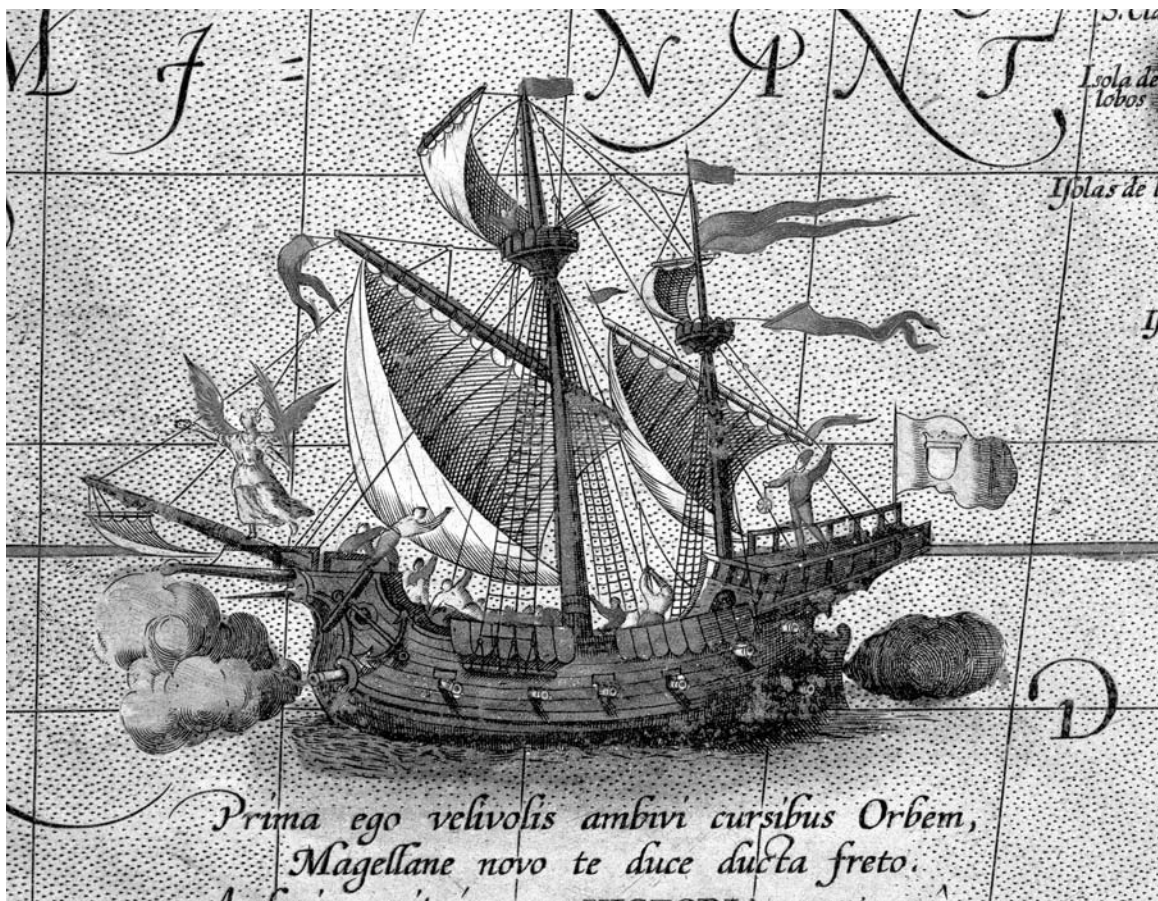 S. Cla
M I = N Q N T
Isola de
lobos
Isolas de l
D
Prima ego velivolis ambivi cursibus Orbem,
Magellane novo te duce ducta freto.